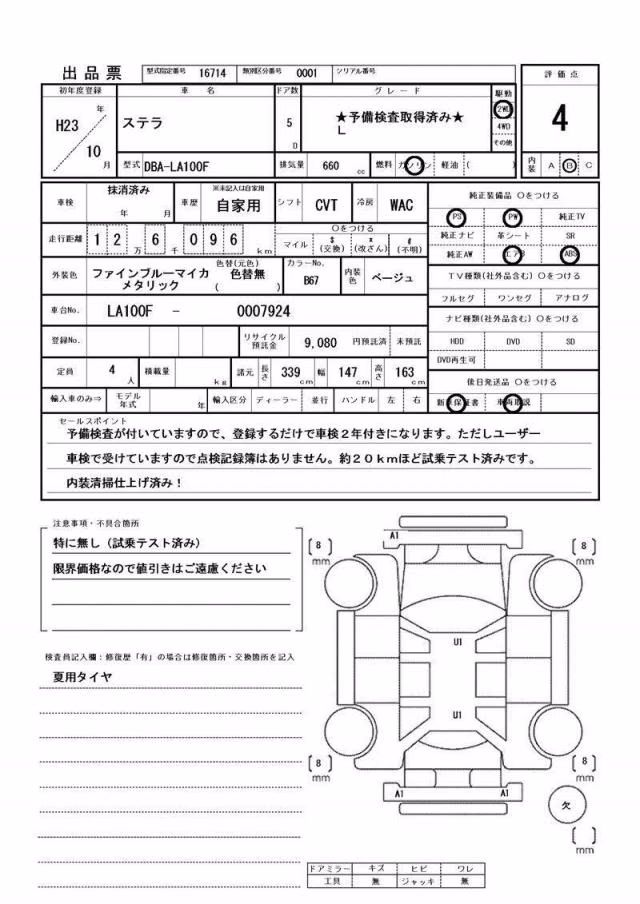 出品票
型式指定番号 16714 類別区分番号 0001 シリアル番号
評価点
4
内装 A B C
初年度登録 車名 ドア数 グレード 駆動
H23 年 10 月
ステラ
5 D
★予備検査取得済み★
L
2WD
4WD
その他
型式 DBA-LA100F 排気量 660 cc 燃料 ガソリン 軽油 ( )
車検 抹消済み 年 月
車歴 ※未記入は自家用 自家用
シフト CVT 冷房 WAC
走行距離 12万6千096km
○をつける
マイル $(交換) x(改ざん) #(不明)
外装色 ファインブルーマイカメタリック
色替(元色) 色替無 ( )
カラーNo. B67 内装色 ベージュ
車台No. LA100F - 0007924
登録No. リサイクル預託金 9,080 円預託済 未預託
定員 4 人 積載量 kg 諸元 長さ 339 cm 幅 147 cm 高さ 163 cm
輸入車のみ⇒ モデル年式 年 輸入区分 ディーラー 並行 ハンドル 左 右
純正装備品 ○をつける
PS PW 純正TV
純正ナビ 革シート SR
純正AW エアB ABS
TV種類(社外品含む) ○をつける
フルセグ ワンセグ アナログ
ナビ種類(社外品含む) ○をつける
HDD DVD SD
DVD再生可
後日発送品 ○をつける
新車保証書 車両取説
セールスポイント
予備検査が付いていますので、登録するだけで車検2年付きになります。ただしユーザー
車検で受けていますので点検記録簿はありません。約20kmほど試乗テスト済みです。
内装清掃仕上げ済み!
注意事項・不具合箇所
特に無し(試乗テスト済み)
限界価格なので値引きはご遠慮ください
検査員記入欄:修復歴「有」の場合は修復箇所・交換箇所を記入
夏用タイヤ
A1
8 mm
8 mm
U1
U1
8 mm
8 mm
A1 A1
欠
mm
ドアミラー キズ ヒビ ワレ
工具 無 ジャッキ 無